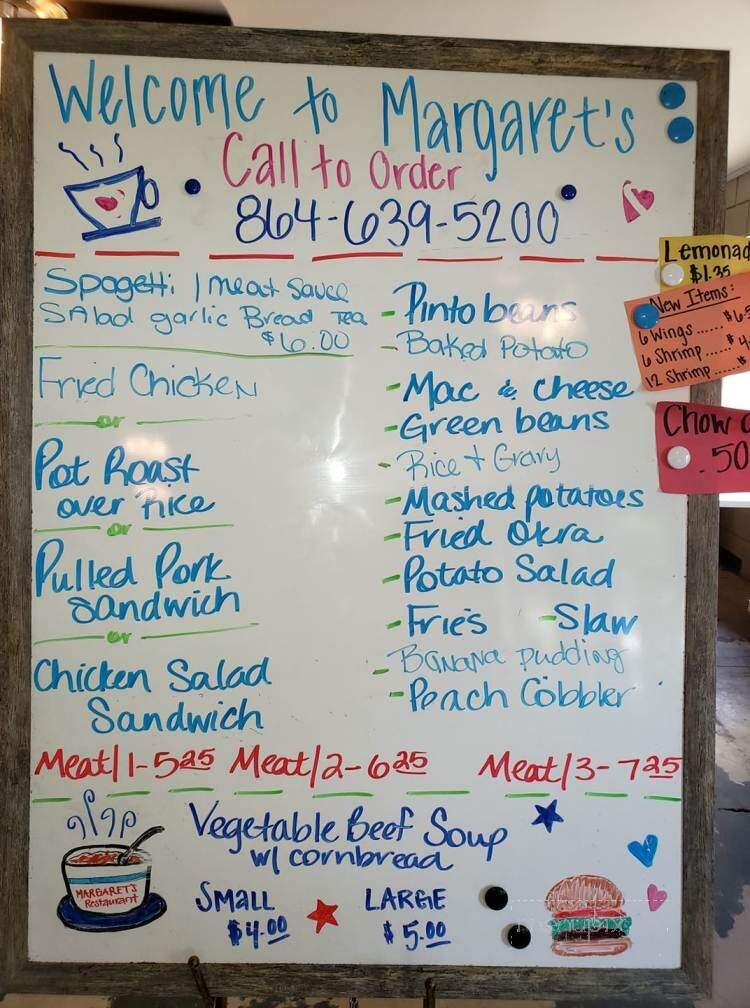 Welcome to Margaret's
Call to Order
864-639-5200
Spagetti / meat Sauce
SAlad garlic Bread Tea
$6.00
Fried Chicken
or
Pot Roast
over Rice
or
Pulled Pork
Sandwich
or
Chicken Salad
Sandwich
- Pinto beans
- Baked Potato
- Mac & Cheese
- Green beans
- Rice + Gravy
- Mashed potatoes
- Fried Okra
- Potato Salad
- Fries - Slaw
- Banana Pudding
- Peach Cobbler
Meat/1-5.25 Meat/2-6.25 Meat/3-7.25
Vegetable Beef Soup
w/ cornbread
SMALL
$4.00
LARGE
$5.00
MARGARET'S
Restaurant
Lemonad
$1.35
New Items:
6 Wings......
6 Shrimp......
12 Shrimp......
Chow
.50